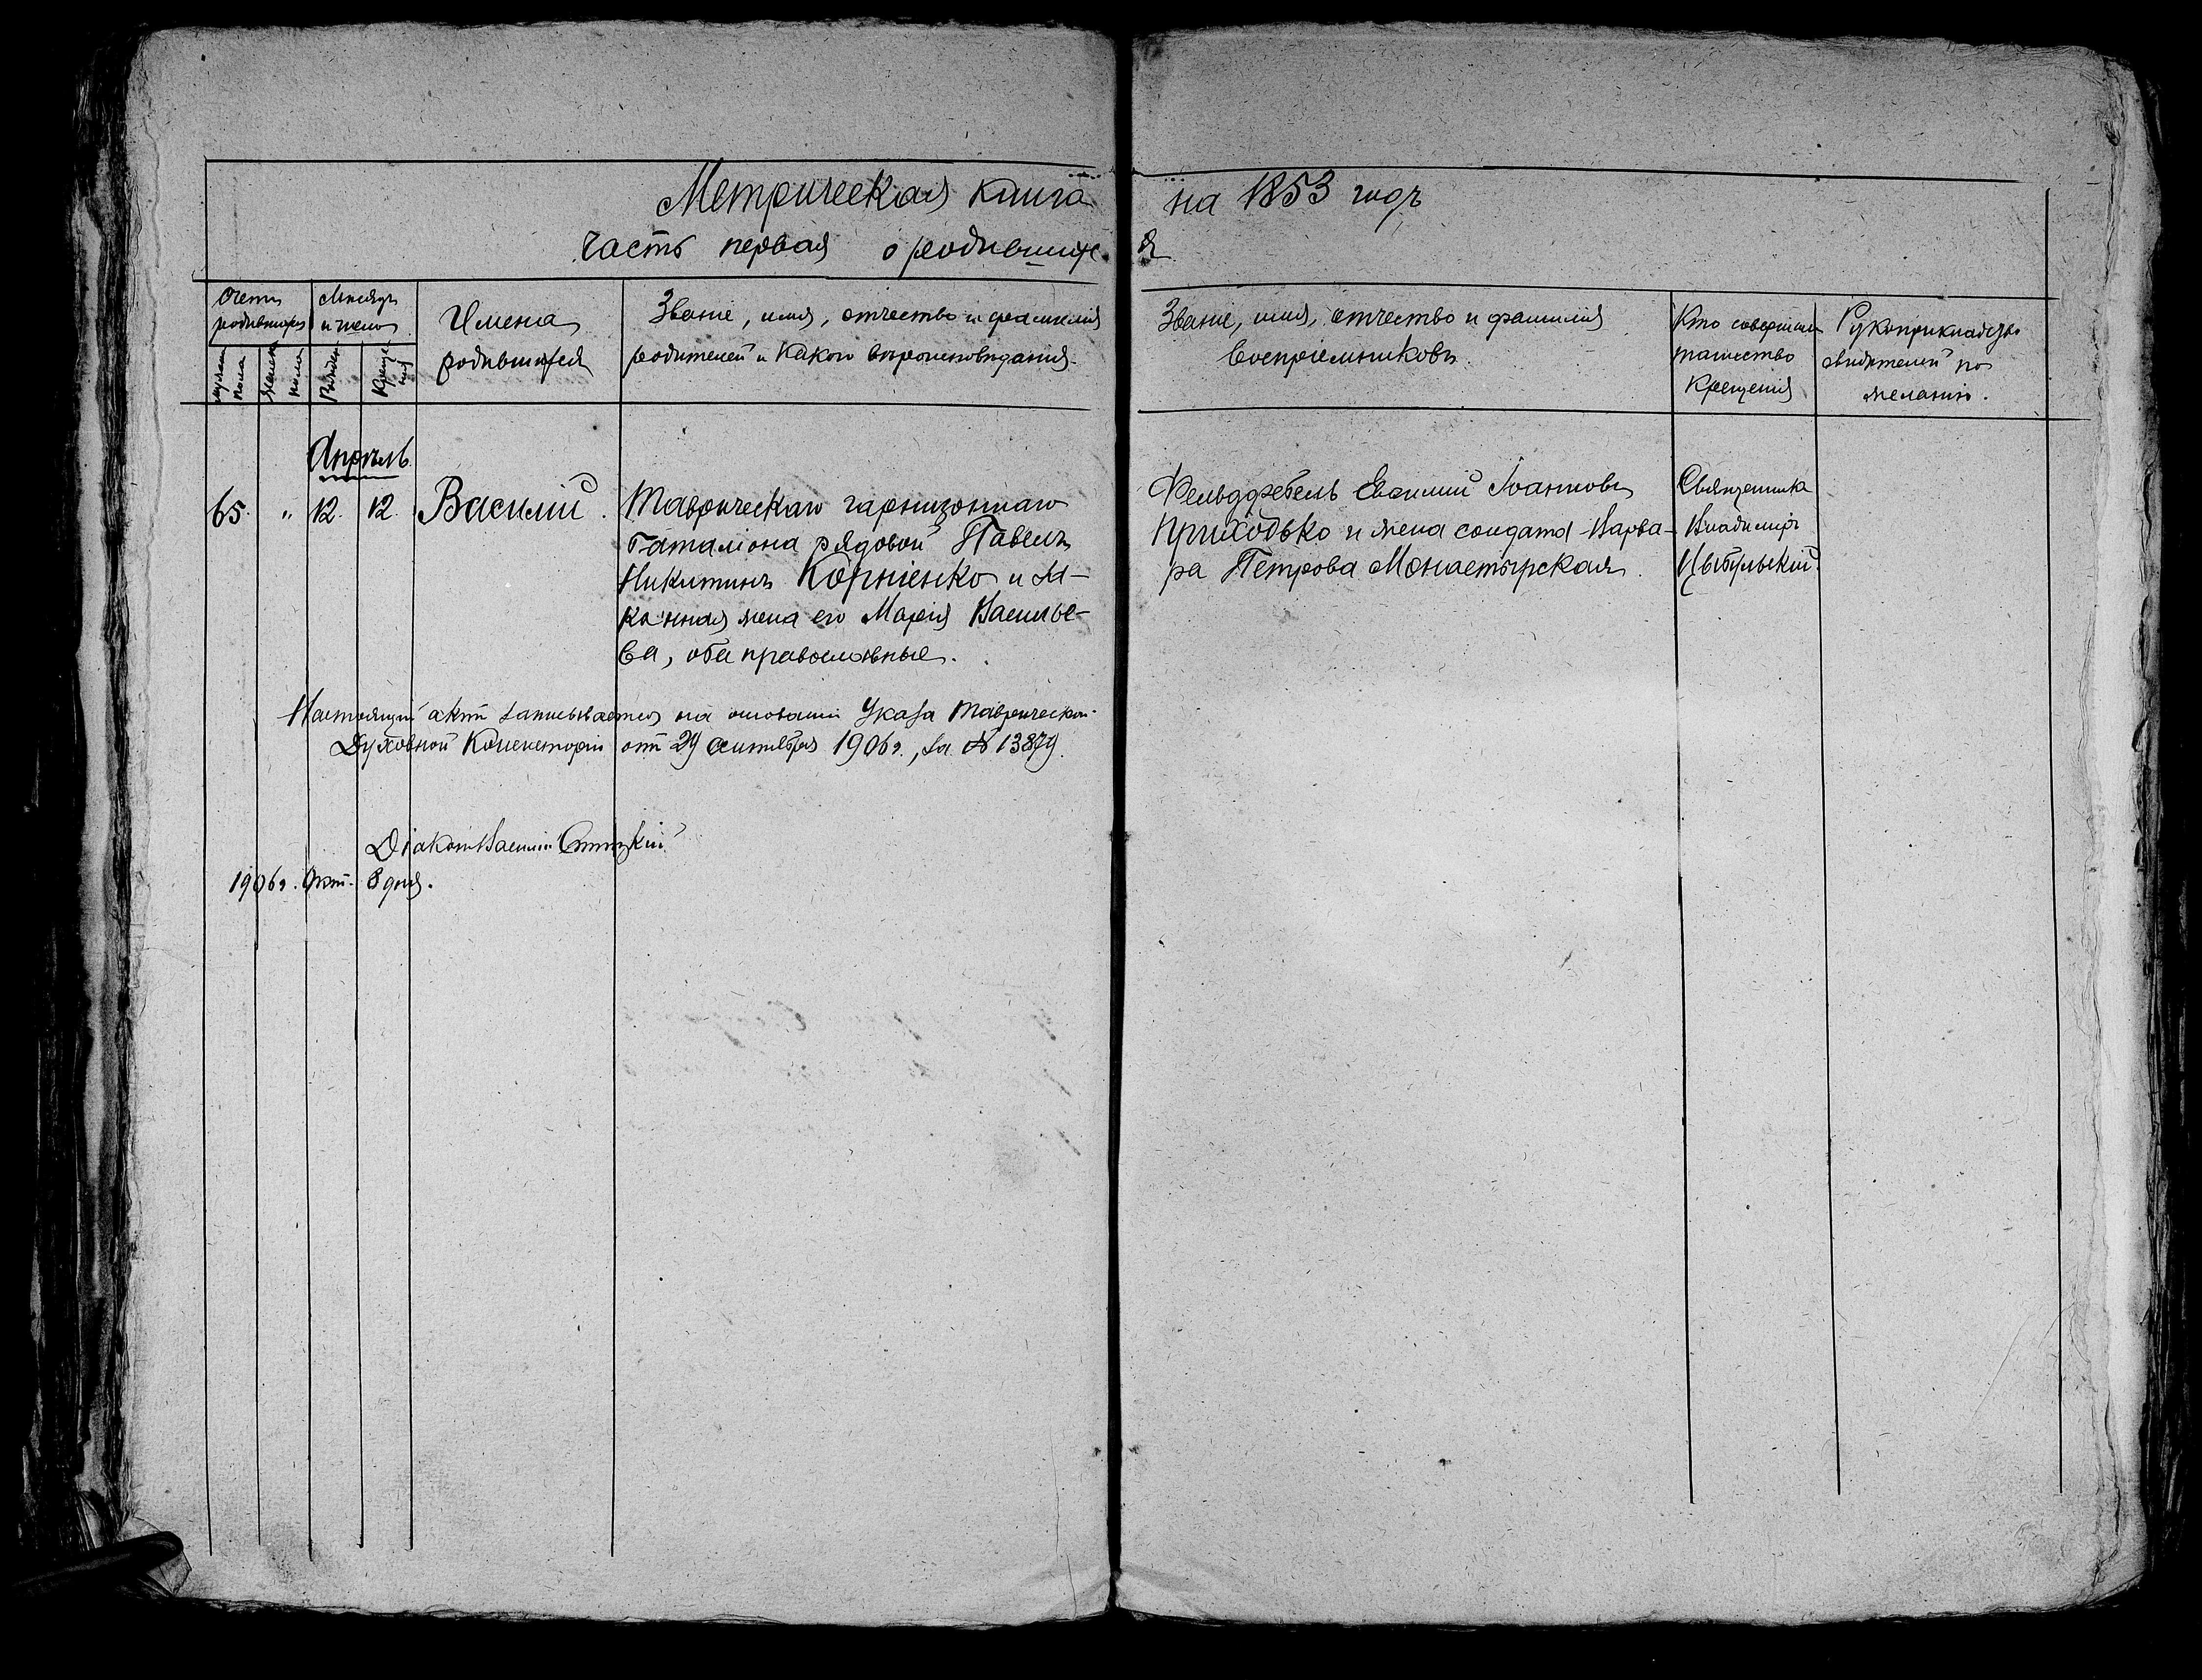 Метрическая книга на 1853 годъ
часть первая о родившихся
Счетъ родившихся
Мѣсяцъ и число
Имена родившихся
Званіе, имя, отчество и фамилия
родителей и какого вѣроисповѣданія.
Званіе, имя, отчество и фамилия
воспріемниковъ.
Кто совершилъ
таинство
крещенія
Рукоприкладство
свидѣтелей по
желанію.
мужеска пола
женска пола
Рожден.
Крещенія
Апрѣль
65. „ 12. 12. Василій.
Таврическаго гарнизоннаго
баталіона рядовой Павелъ
Никитинъ Корніенко и за-
конная жена его Марія Василье-
ва, оба православные.
Фельдфебель Евѳимій Іоанновъ
Приходько и жена солдата Варва-
ра Петрова Монастырская.
Священника
Владимиръ
Цыбульскій.
Настоящій актъ записывается на основаніи Указа Таврической
Духовной Консисторіи отъ 29 сентября 1906 г., за № 13879.
Діаконъ Василій
1906 г. Окт. 8 дня.